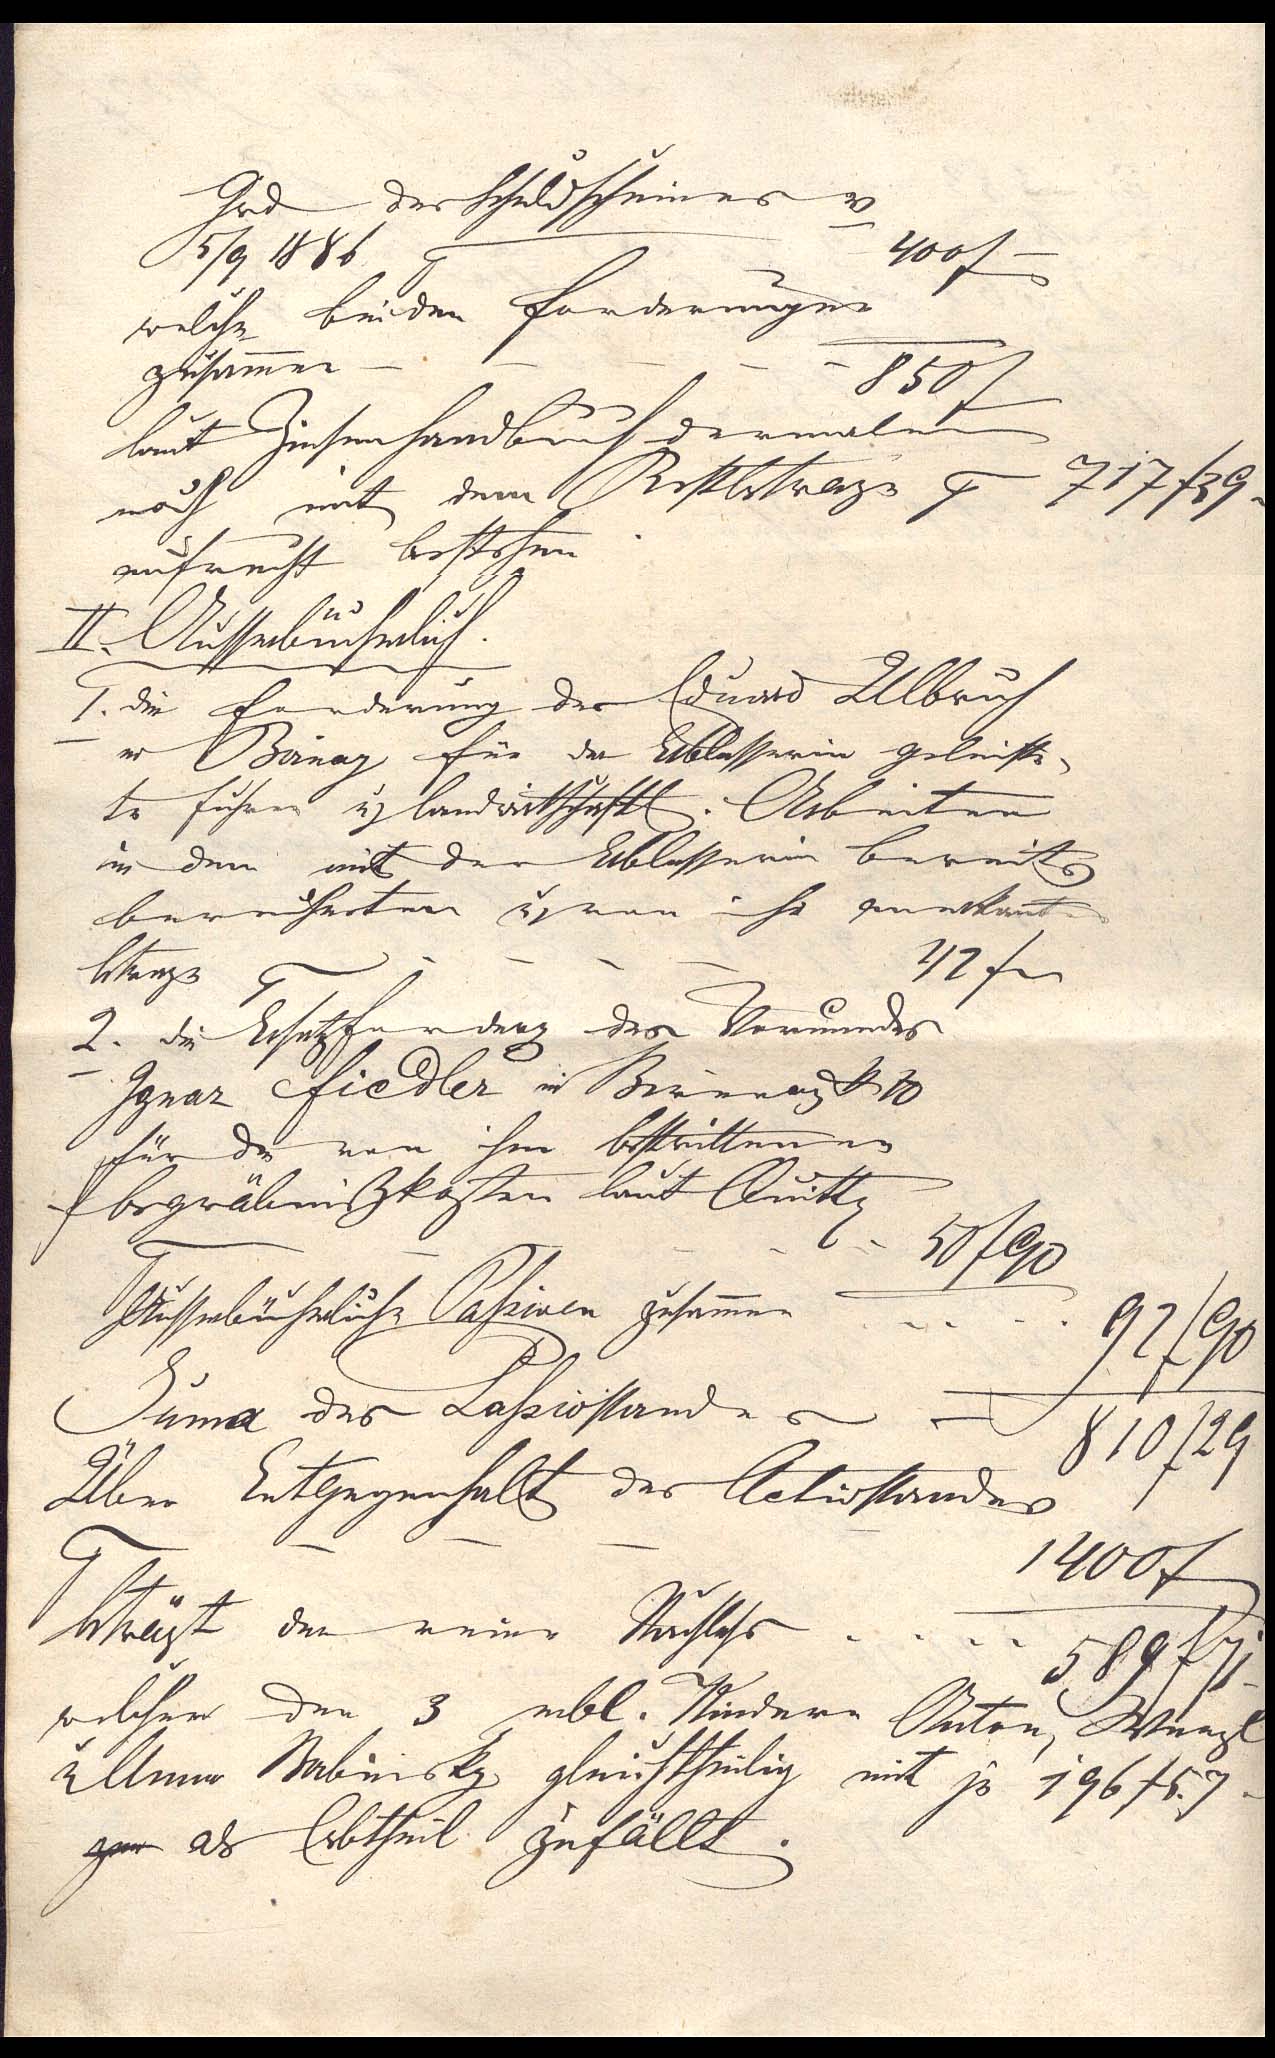 Grd des Schuldscheines v
5/9 1886 400 f –
welche beiden Forderungen
zusammen – – – – 850 f
laut Zinsenhandbuch dermalen
noch mit dem Restbetrage 717 f 39
aufrecht bestehen
II. Ausserbücherlich.
1. die Forderung des Eduard Ulbrich
in für der Erblasserin geleiste-
te Fuhren u landwirtschaftl. Arbeiten
in dem mit der Erblasserin bereits
berechneten u von ihr anerkannt
Betrage – – – – 42 f
2. die Ersatzforderg des Vormundes
Ignaz Fiedler in
für die von ihm bestrittenen
Begräbnißkosten laut Quittg
– – – 50 f 90
Ausserbücherliche Passiven zusammen . . . . 92 f 90
Suma des Passivstandes – 810 f 29
Über Entgegenhalt des Activstandes
– – – 1400 f
beträgt der reine Nachlass . . . . 589 f 71
welcher den 3 erbl. Kindern Anton, Wenzl
u Anna gleichtheilig mit je 196 f 57
als Erbtheil zufällt.